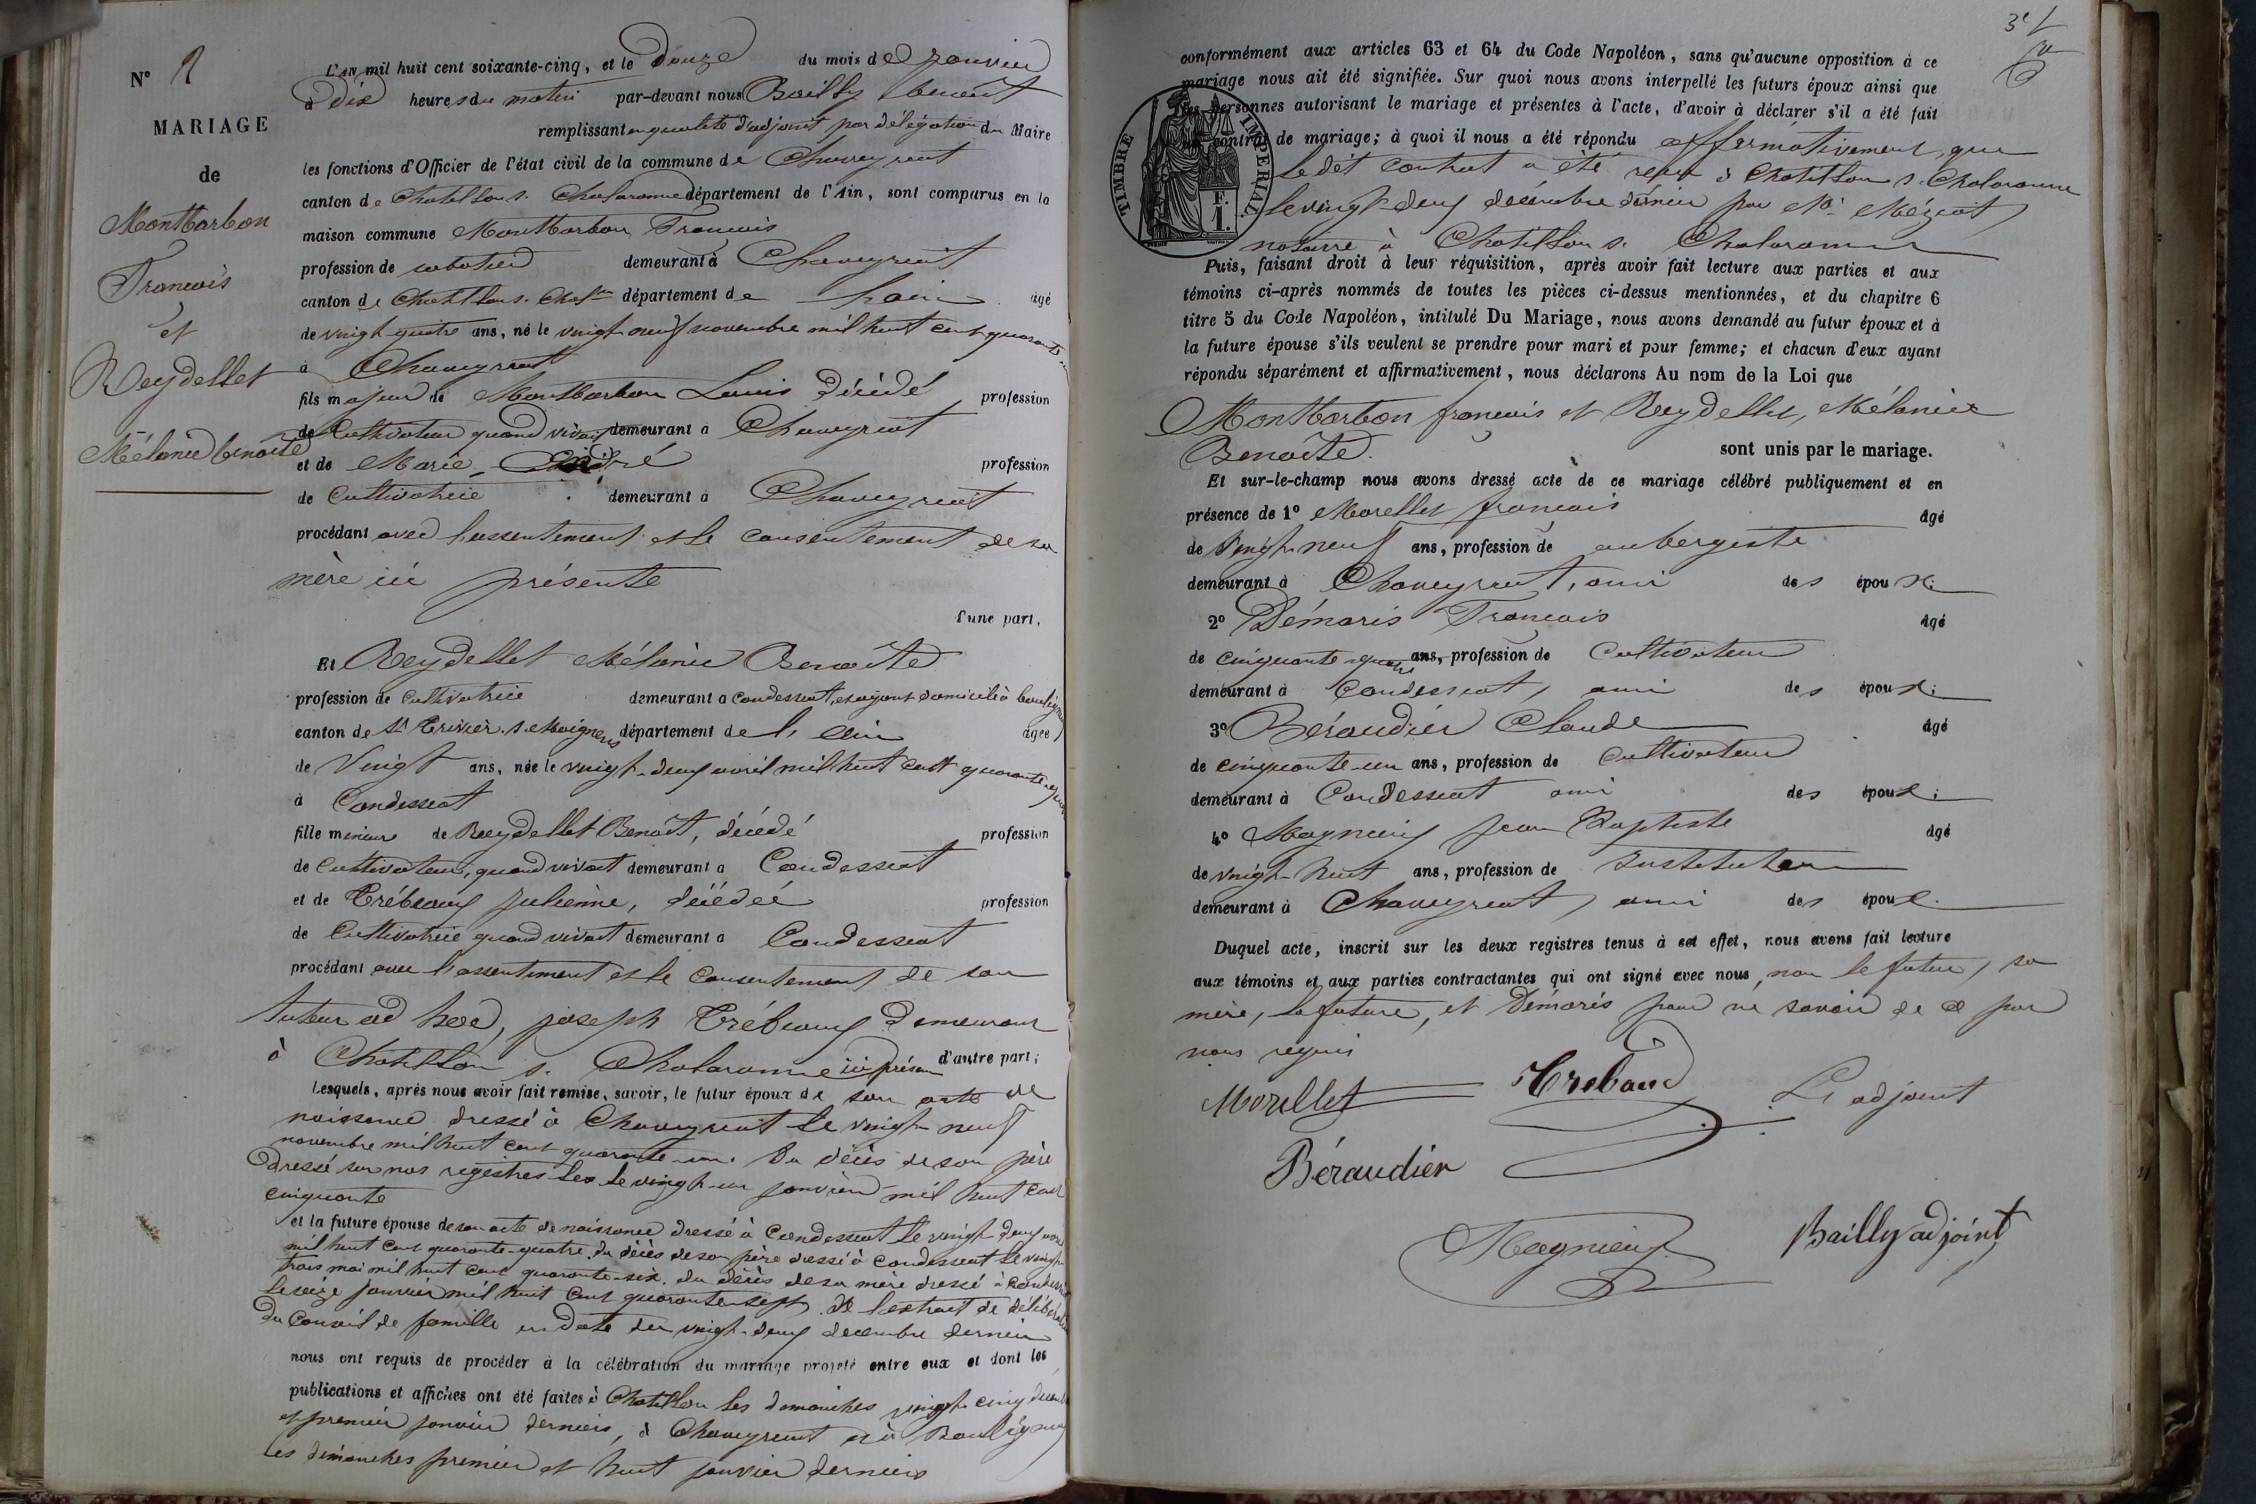 N° 2
MARIAGE
de
Montbarbon
Francois
et
Reydellet
Mélanie benoîte
L'AN mil huit cent soixante-cinq, et le Douze du mois de janvier
à dix heures du matin par-devant nous Bailly benoît
remplissant en qualité d'adjoint par délégation du Maire
les fonctions d'Officier de l'état civil de la commune de Chaneyriat
canton de Chatillon s. Chalaronne département de l'Ain, sont comparus en la
maison commune Montbarbon Francois
profession de sabotier demeurant à Chaneyriat
canton de Chatillon s. Chalne département de l'ain âgé
de vingt-quatre ans, né le vingt neuf novembre mil huit cent quarante
à Chaneyriat
fils majeur de Montbarbon Louis Décédé profession
de Cultivateur quand vivait demeurant à Chaneyriat
et de Marie profession
de Cultivatrice demeurant à Chaneyriat
procédant avec l'assentiment et le consentement de sa
mère ici présente
d'une part,
Et Reydellet Mélanie Benoîte
profession de Cultivatrice demeurant à Condessiat, et ayant domicile à bouligneux
canton de St Trivier s. Moignans département de l'Ain âgée
de Vingt ans, née le vingt-deux avril mil huit cent quarante-quatre
à Condessiat
fille mineure de Reydellet Benoît, décédé profession
de Cultivateur, quand vivait demeurant à Condessiat
et de Trébeaux Julienne, décédée profession
de Cultivatrice quand vivait demeurant à Condessiat
procédant avec l'assentiment et le consentement de son
tuteur ad hoc, joseph Trébeaux Demeurant
à Chatillon s. Chalaronne ici présent d'autre part;
Lesquels, après nous avoir fait remise, savoir, le futur époux de son acte de
naissance dressé à Chaneyriat le vingt neuf
novembre mil huit cent quarante-un. Du décès de son père
Dressé sur nos registres les le vingt-un janvier mil huit cent
cinquante
et la future épouse de son acte de naissance dressé à Condessiat le vingt deux avril
mil huit cent quarante-quatre, du décès de son père dressé à Condessiat le vingt
trois mai mil huit cent quarante-six. du décès de sa mère dressé à Condessiat
le seize janvier mil huit cent quarante-sept. De l'extrait de délibération
du Conseil de famille en Date du vingt-deux décembre dernier
nous ont requis de procéder à la célébration du mariage projeté entre eux et dont les
publications et affiches ont été faites à Chatillon les dimanches vingt-cinq décembre
et premier janvier derniers, à Chaneyriat et à Bouligneux
les dimanches premier et huit janvier derniers
conformément aux articles 63 et 64 du Code Napoléon, sans qu'aucune opposition à ce
mariage nous ait été signifiée. Sur quoi nous avons interpellé les futurs époux ainsi que
les personnes autorisant le mariage et présentes à l'acte, d'avoir à déclarer s'il a été fait
un contrat de mariage; à quoi il nous a été répondu affirmativement, que
le dit contrat a été reçu à Chatillon s. Chalaronne
le vingt-deux décembre dernier par Me
notaire à Chatillon s. Chalaronne
TIMBRE IMPERIAL
1 F.
Puis, faisant droit à leur réquisition, après avoir fait lecture aux parties et aux
témoins ci-après nommés de toutes les pièces ci-dessus mentionnées, et du chapitre 6
titre 5 du Code Napoléon, intitulé Du Mariage, nous avons demandé au futur époux et à
la future épouse s'ils veulent se prendre pour mari et pour femme; et chacun d'eux ayant
répondu séparément et affirmativement, nous déclarons Au nom de la Loi que
Montbarbon francois et Reydellet, Mélanie
Benoîte. sont unis par le mariage.
Et sur-le-champ nous avons dressé acte de ce mariage célébré publiquement et en
présence de 1° Morellet francois âgé
de vingt-neuf ans, profession de aubergiste
demeurant à Chaneyriat, ami des époux;
2° Démaris Francois âgé
de cinquante-quatre ans, profession de Cultivateur
demeurant à Condessiat, ami des époux;
3° Béraudier Claude âgé
de cinquante-un ans, profession de Cultivateur
demeurant à Condessiat ami des époux;
4° Magnieux Jean Baptiste âgé
de vingt-huit ans, profession de Instituteur
demeurant à Chaneyriat, ami des époux.
Duquel acte, inscrit sur les deux registres tenus à cet effet, nous avons fait lecture
aux témoins et aux parties contractantes qui ont signé avec nous, non le futur, sa
mère, la future, et Démaris pour ne savoir de ce par
nous requis
Morellet Trebaud L'adjoint
Béraudier
Magnieux Bailly adjoint